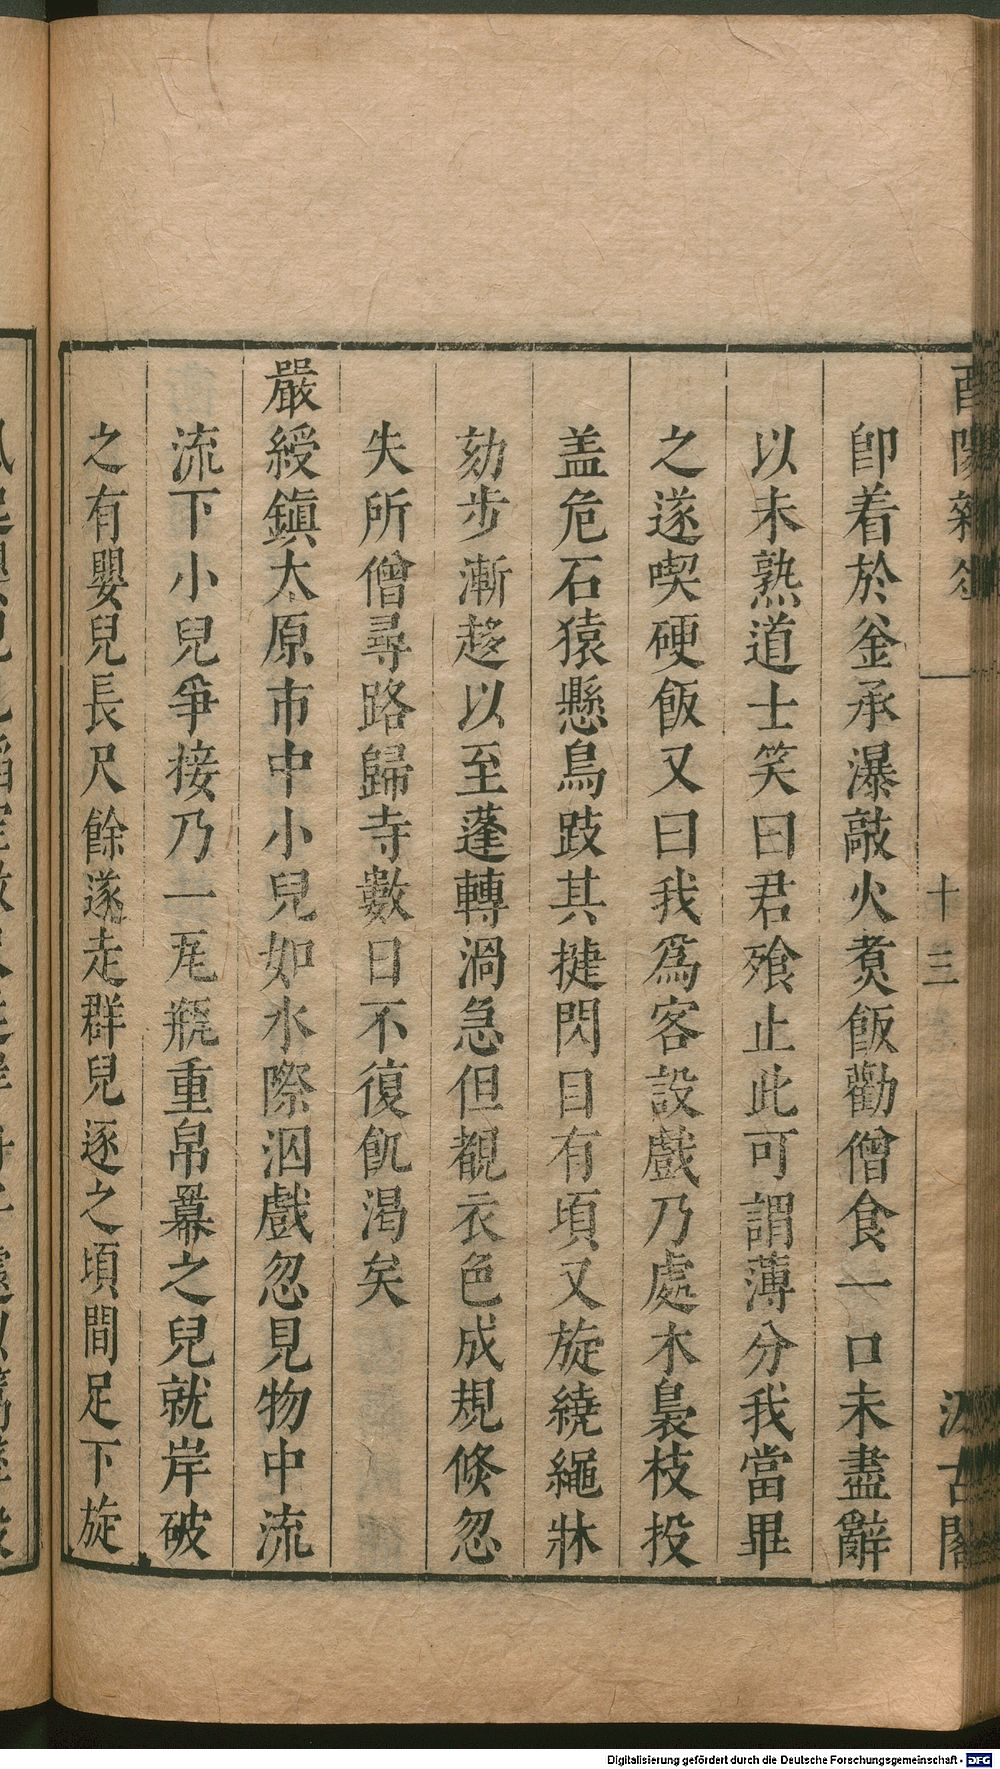 酉陽雜俎
十三
汲古閣
卽着於釡承瀑敲火煑飯勸僧食一口未盡辭
以未熟道士笑曰君飱止此可謂薄分我當畢
之遂喫硬飯又曰我爲客設戲乃處木裊枝投
盖危石猿懸鳥跂其揵閃目有頃又旋繞繩牀
劾步漸趍以至蓬轉渦急但覩衣色成規倐忽
失所僧尋路歸寺數日不復飢渴矣
嚴綬鎮太原市中小兒如水際泅戲忽見物中流
流下小兒爭接乃一瓦瓶重帛羃之兒就岸破
之有嬰兒長尺餘遂走群兒逐之頃間足下旋
Digitalisierung gefördert durch die Deutsche Forschungsgemeinschaft - DFG